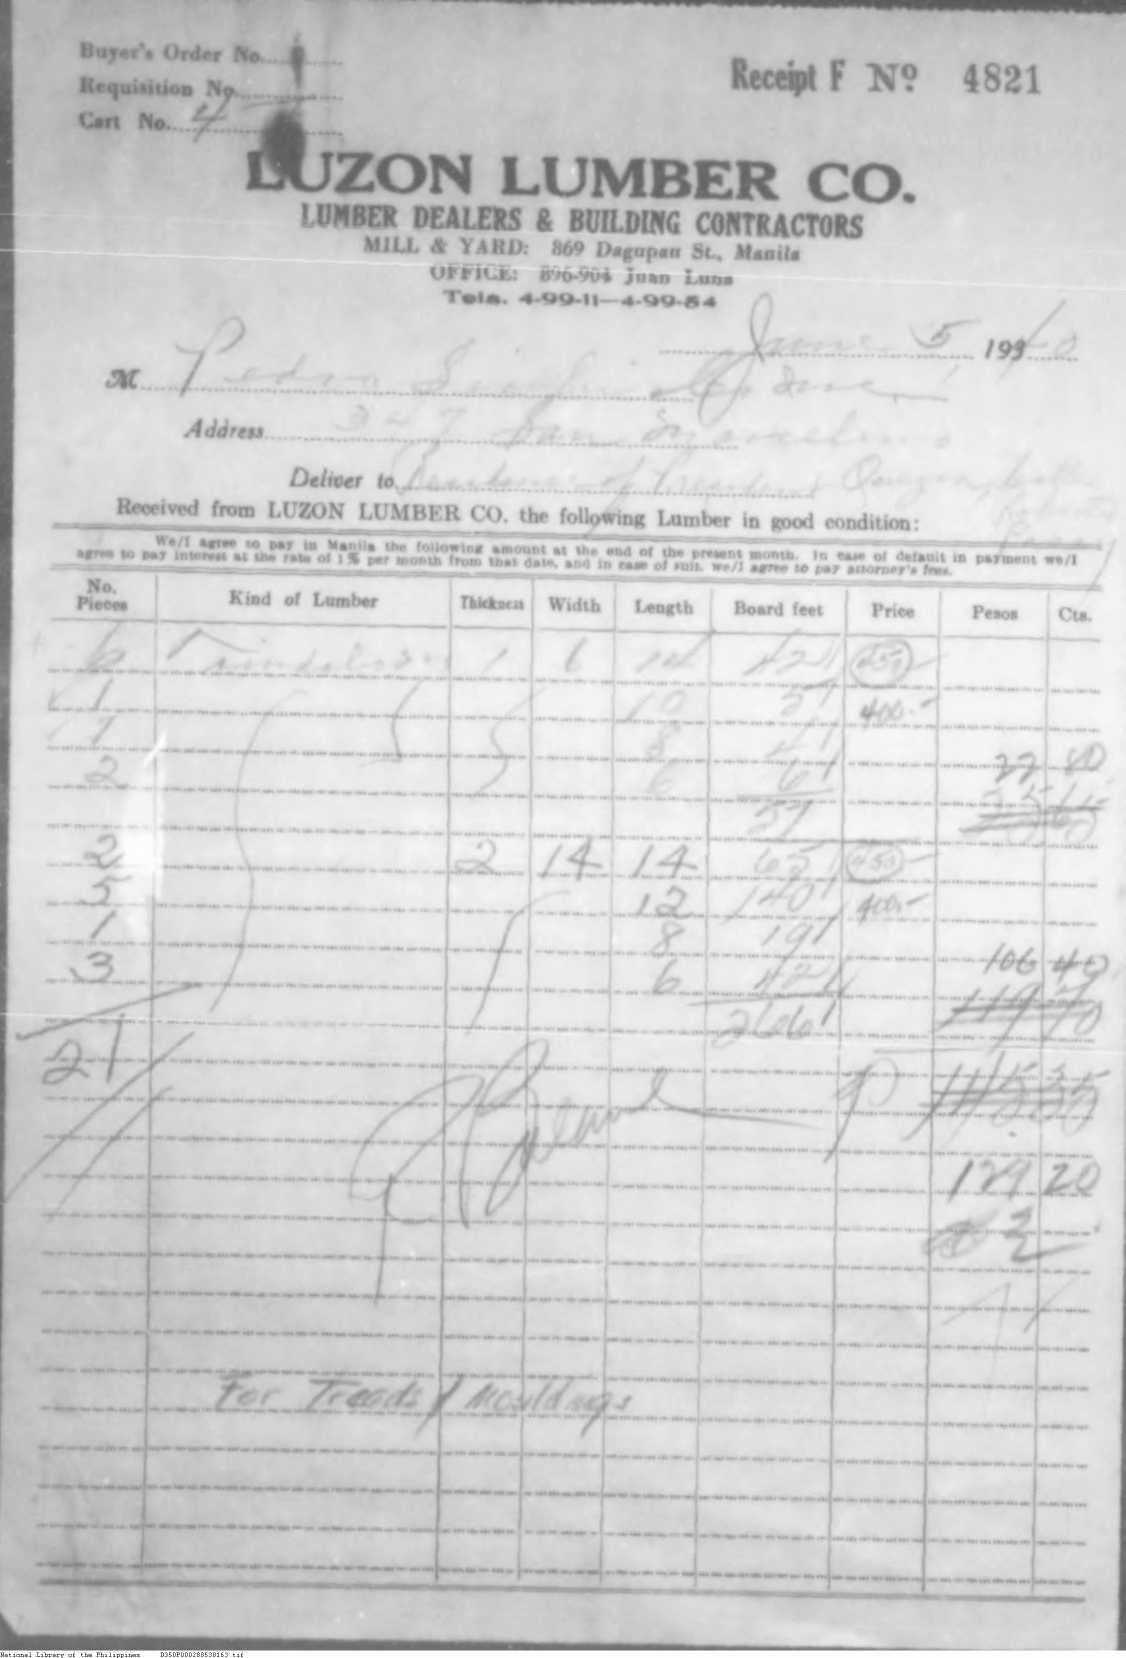 Buyer's Order No.
Receipt F No 4821
Requisition No.
Cart No. 4
LUZON LUMBER CO.
LUMBER DEALERS & BUILDING CONTRACTORS
MILL & YARD: 869 Dagupan St., Manila
OFFICE: 896-904 Juan Luna
Tels. 4-99-11—4-99-54
June 5, 1940
M Pedro Siochi & Co Inc.
Address 347 San Marcelino
Deliver to Residence of President Quezon,
Received from LUZON LUMBER CO. the following Lumber in good condition:
We/I agree to pay in Manila the following amount at the end of the present month. In case of default in payment we/I
agree to pay interest at the rate of 1% per month from that date, and in case of suit, we/I agree to pay attorney's fees.
No. Pieces Kind of Lumber Thickness Width Length Board feet Price Pesos Cts.
6 1 6 14 42 450-
1 10 5 400.-
1 8 4
2 6 6 22 80
57
2 2 14 14 65 450-
5 12 140 400.-
1 8 19
3 6 42 106 40
266
21
129 20
For Treads / Mouldings
National Library of the Philippines D350P000288538163.tif